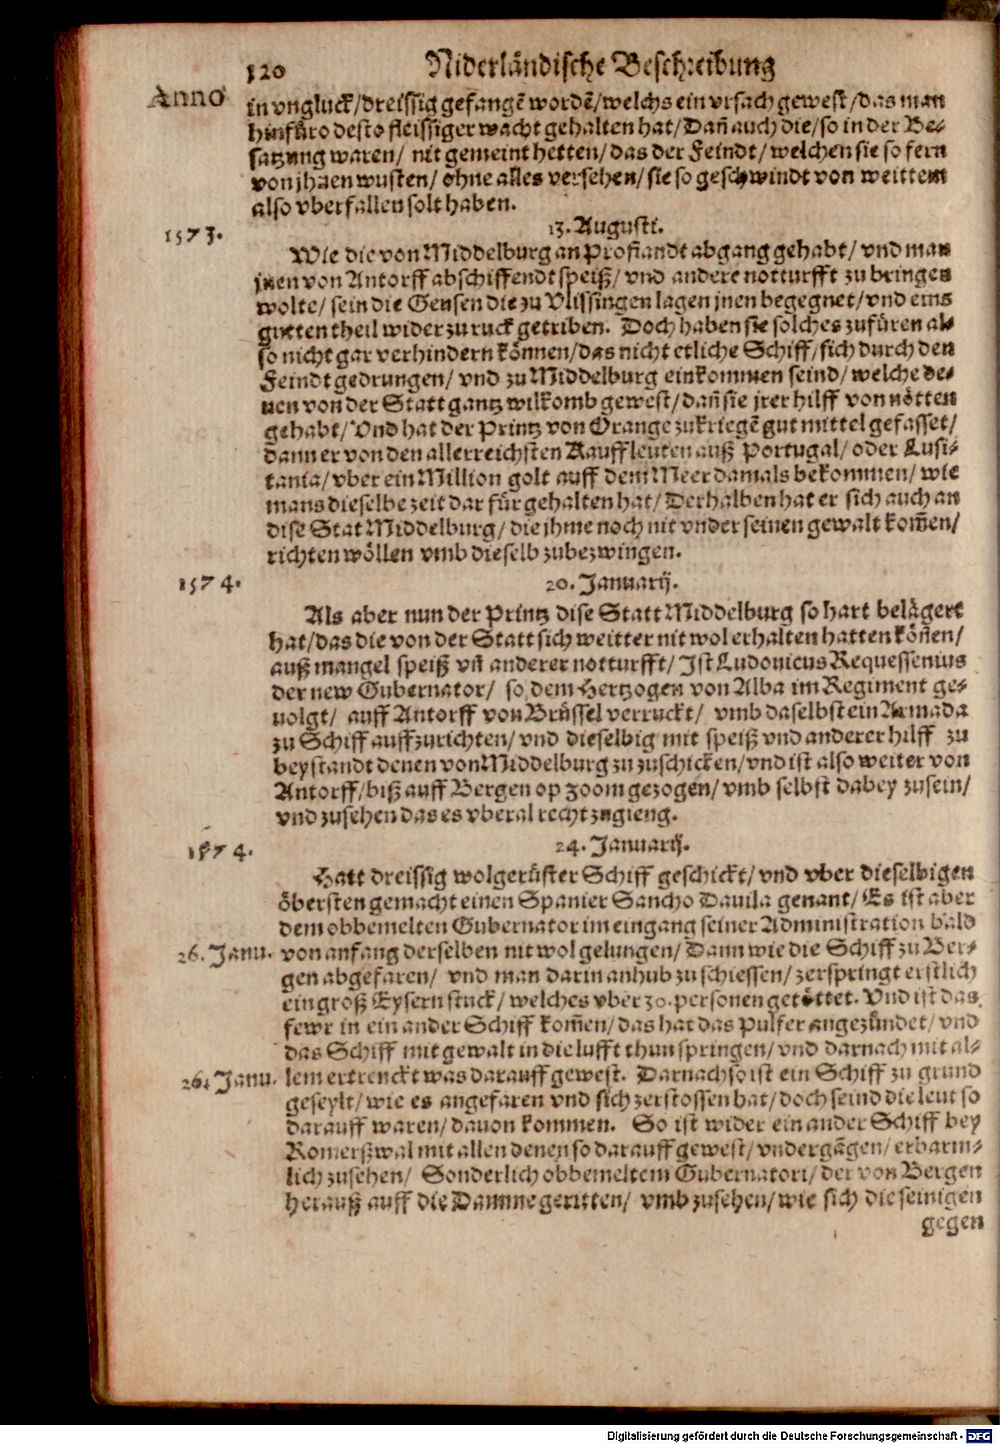 120 Niderländische Beschreibung
Anno
in vngluck/dreissig gefangē wordē/welchs ein vrsach gewest/das man
hinfüro desto fleissiger wacht gehalten hat/Dañ auch die/so in der Be-
satzung waren/ nit gemeint hetten/das der Feindt/welchen sie so fern
von jhnen wusten/ ohne alles versehen/sie so geschwindt von weittem
also vberfallen solt haben.
13. Augusti.
1573.
Wie die von Middelburg an Profiandt abgang gehabt/ vnd man
jnen von Antorff abschiffendt speiß/ vnd andere notturfft zu bringen
wolte/ sein die Geusen die zu Vlissingen lagen jnen begegnet/vnd eins
gutten theil wider zu ruck getriben. Doch haben sie solches zufüren al-
so nicht gar verhindern können/das nicht etliche Schiff/sich durch den
Feindt gedrungen/ vnd zu Middelburg einkommen seind/ welche de-
nen von der Statt gantz wilkomb gewest/dañ sie jrer hilff von nötten
gehabt/ Vnd hat der Printz von Orange zukriegē gut mittel gefasset/
dann er von den allerreichsten Kauffleuten auß Portugal/ oder Lusi-
tania/ vber ein Million golt auff dem Meer damals bekommen/ wie
mans dieselbe zeit dar für gehalten hat/ Derhalben hat er sich auch an
dise Stat Middelburg/ die jhme noch nit vnder seinen gewalt kom̃en/
richten wöllen vmb dieselb zubezwingen.
1574. 20. Januarij.
Als aber nun der Printz dise Statt Middelburg so hart belägert
hat/das die von der Statt sich weitter nit wol erhalten hatten köñen/
auß mangel speiß vñ anderer notturfft/ Ist Ludouicus Requessenius
der new Gubernator/ so dem Hertzogen von Alba im Regiment ge-
uolgt/ auff Antorff von Brüssel verruckt/ vmb daselbst ein Armada
zu Schiff auffzurichten/ vnd dieselbig mit speiß vnd anderer hilff zu
beystandt denen von Middelburg zu zuschicken/vnd ist also weiter von
Antorff/biß auff Bergen op zoom gezogen/ vmb selbst dabey zusein/
vnd zusehen das es vberal recht zugieng.
24. Januarij.
1574.
Hatt dreissig wolgerüster Schiff geschickt/ vnd vber dieselbigen
öbersten gemacht einen Spanier Sancho Dauila genant/ Es ist aber
dem obbemelten Gubernator im eingang seiner Administration bald
26. Janu. von anfang derselben nit wol gelungen/ Dann wie die Schiff zu Ber-
gen abgefaren/ vnd man darin anhub zu schiessen/ zerspringt erstlich
ein groß Eysern stuck/ welches vber 30. personen getöttet. Vnd ist das
fewr in ein ander Schiff kom̃en/das hat das Pulfer angezündet/ vnd
das Schiff mit gewalt in die lufft thun springen/ vnd darnach mit al-
26. Janu. lem ertrenckt was darauff gewest. Darnach so ist ein Schiff zu grund
geseylt/ wie es angefaren vnd sich zerstossen hat/ doch seind die leut so
darauff waren/ dauon kommen. So ist wider ein ander Schiff bey
Romerßwal mit allen denen so darauff gewest/ vndergāgen/ erbarm-
lich zusehen/ Sonderlich obbemeltem Gubernatori/ der von Bergen
herauß auff die Damme geritten/ vmb zusehen/ wie sich die seinigen
gegen
Digitalisierung gefördert durch die Deutsche Forschungsgemeinschaft - DFG